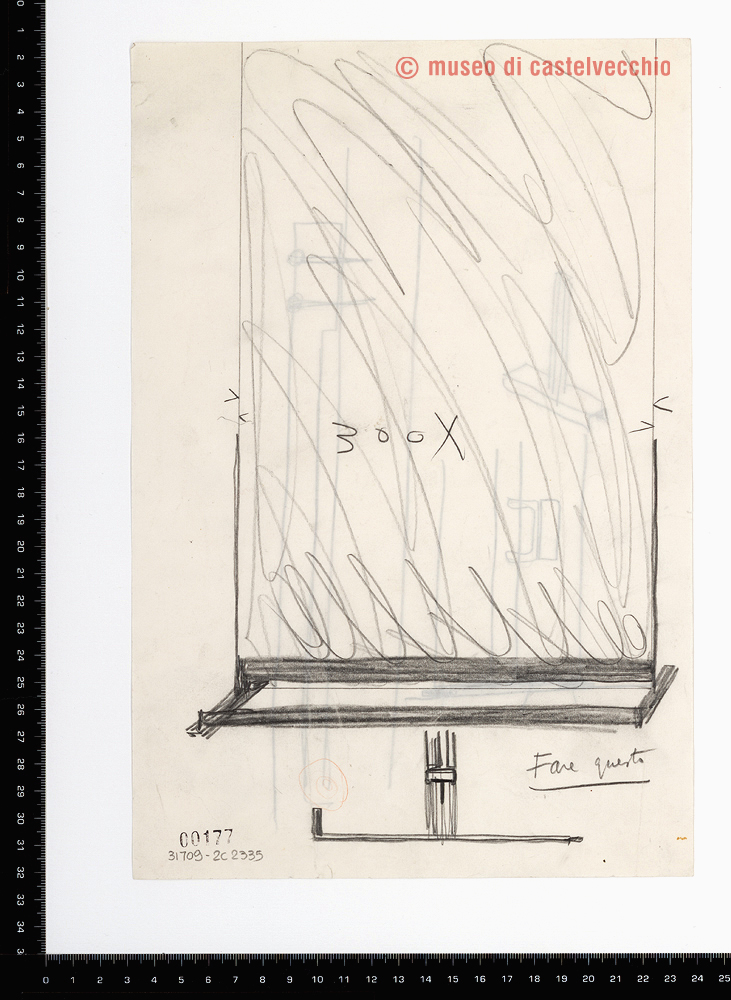 © museo di castelvecchio
300X
Fare questo
00177
31709-2C2335
0
1
2
3
4
5
6
7
8
9
10
11
12
13
14
15
16
17
18
19
20
21
22
23
24
25
26
27
28
29
30
31
32
33
34
0 1 2 3 4 5 6 7 8 9 10 11 12 13 14 15 16 17 18 19 20 21 22 23 24 25